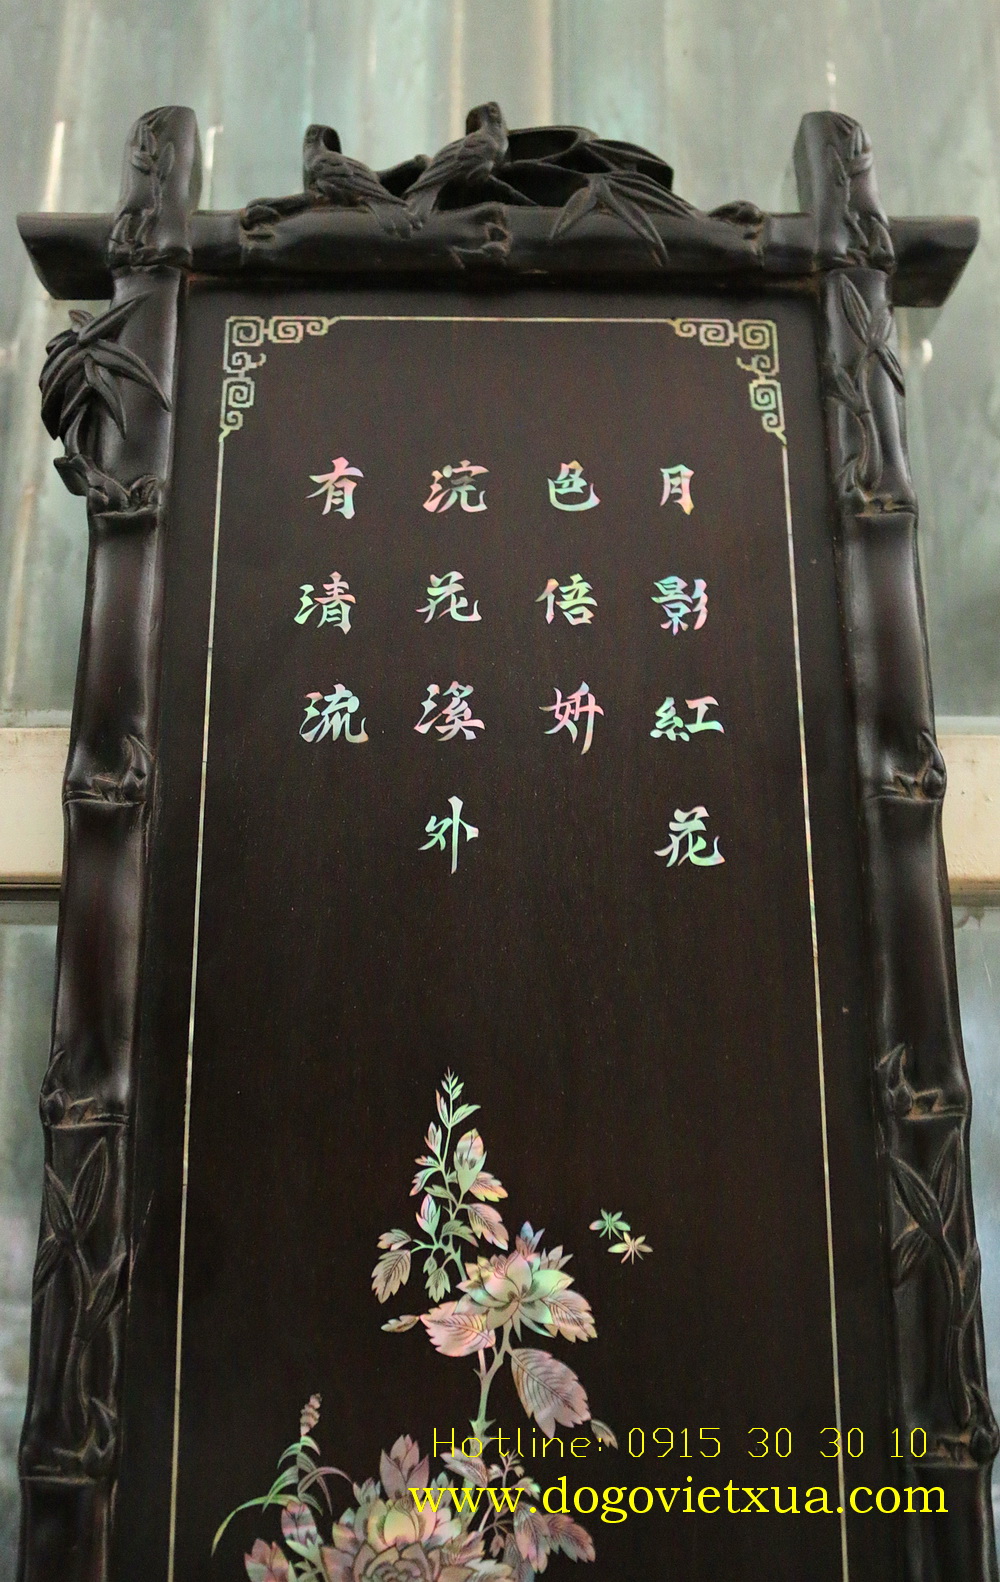 月影紅花
色倍妍
浣花溪外
有清流
Hotline: 0915 30 30 10
www.dogovietxua.com